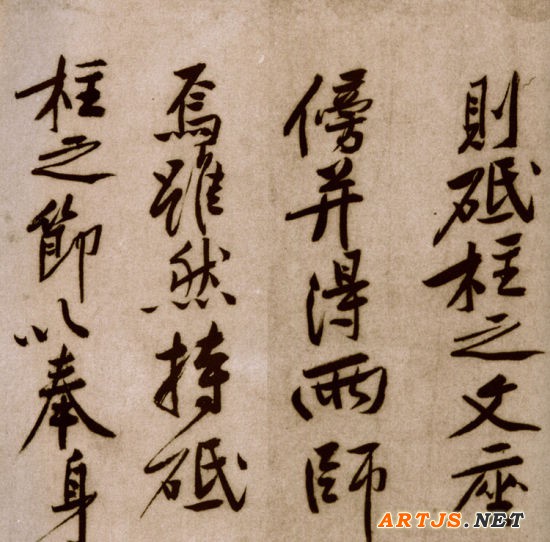 則砥柱之文座
傍并得兩師
焉雖然持砥
柱之節以奉身
ARTJS.NET